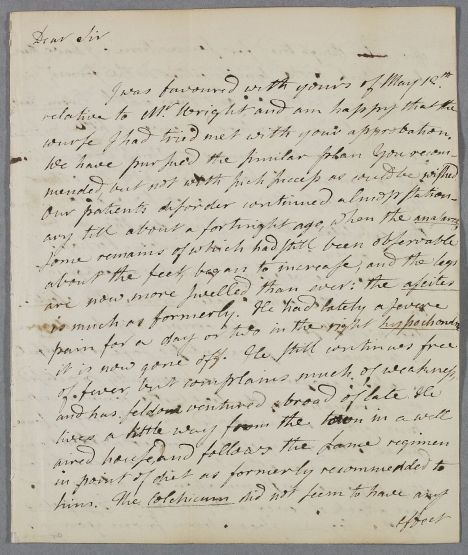 Dear Sir
I was favoured with yours of May 12th
relative to Mr Wright and am happy that the
course I had tried met with your approbation.
We have pursued the similar plan you recom-
mended but not with such success as could be wished
Our patients disorder continued almost station-
ary till about a fortnight ago, when the anasarca,
some remains of which had still been observable
about the feet, began to increase; and the legs
are now more swelled than ever: the ascites
is much as formerly. He had lately a severe
pain for a day or two in the right hypochondre
it is now gone off. He still continues free
of fever but complains much of weakness
and has seldom ventured abroad of late. He
lives a little way from the town in a well
aired house, and follows the same regimen
in point of diet as formerly recommended to
him. The Colchicum did not seem to have any
effect